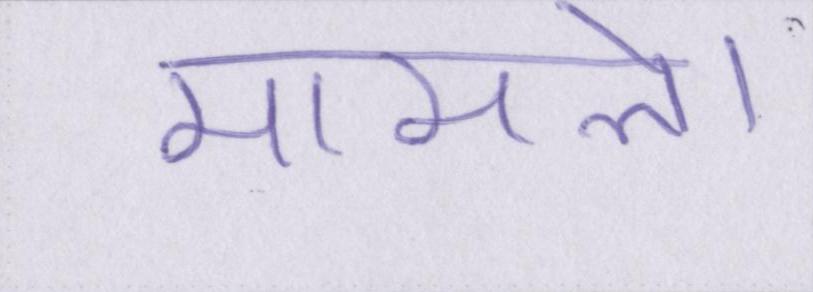 मामले।